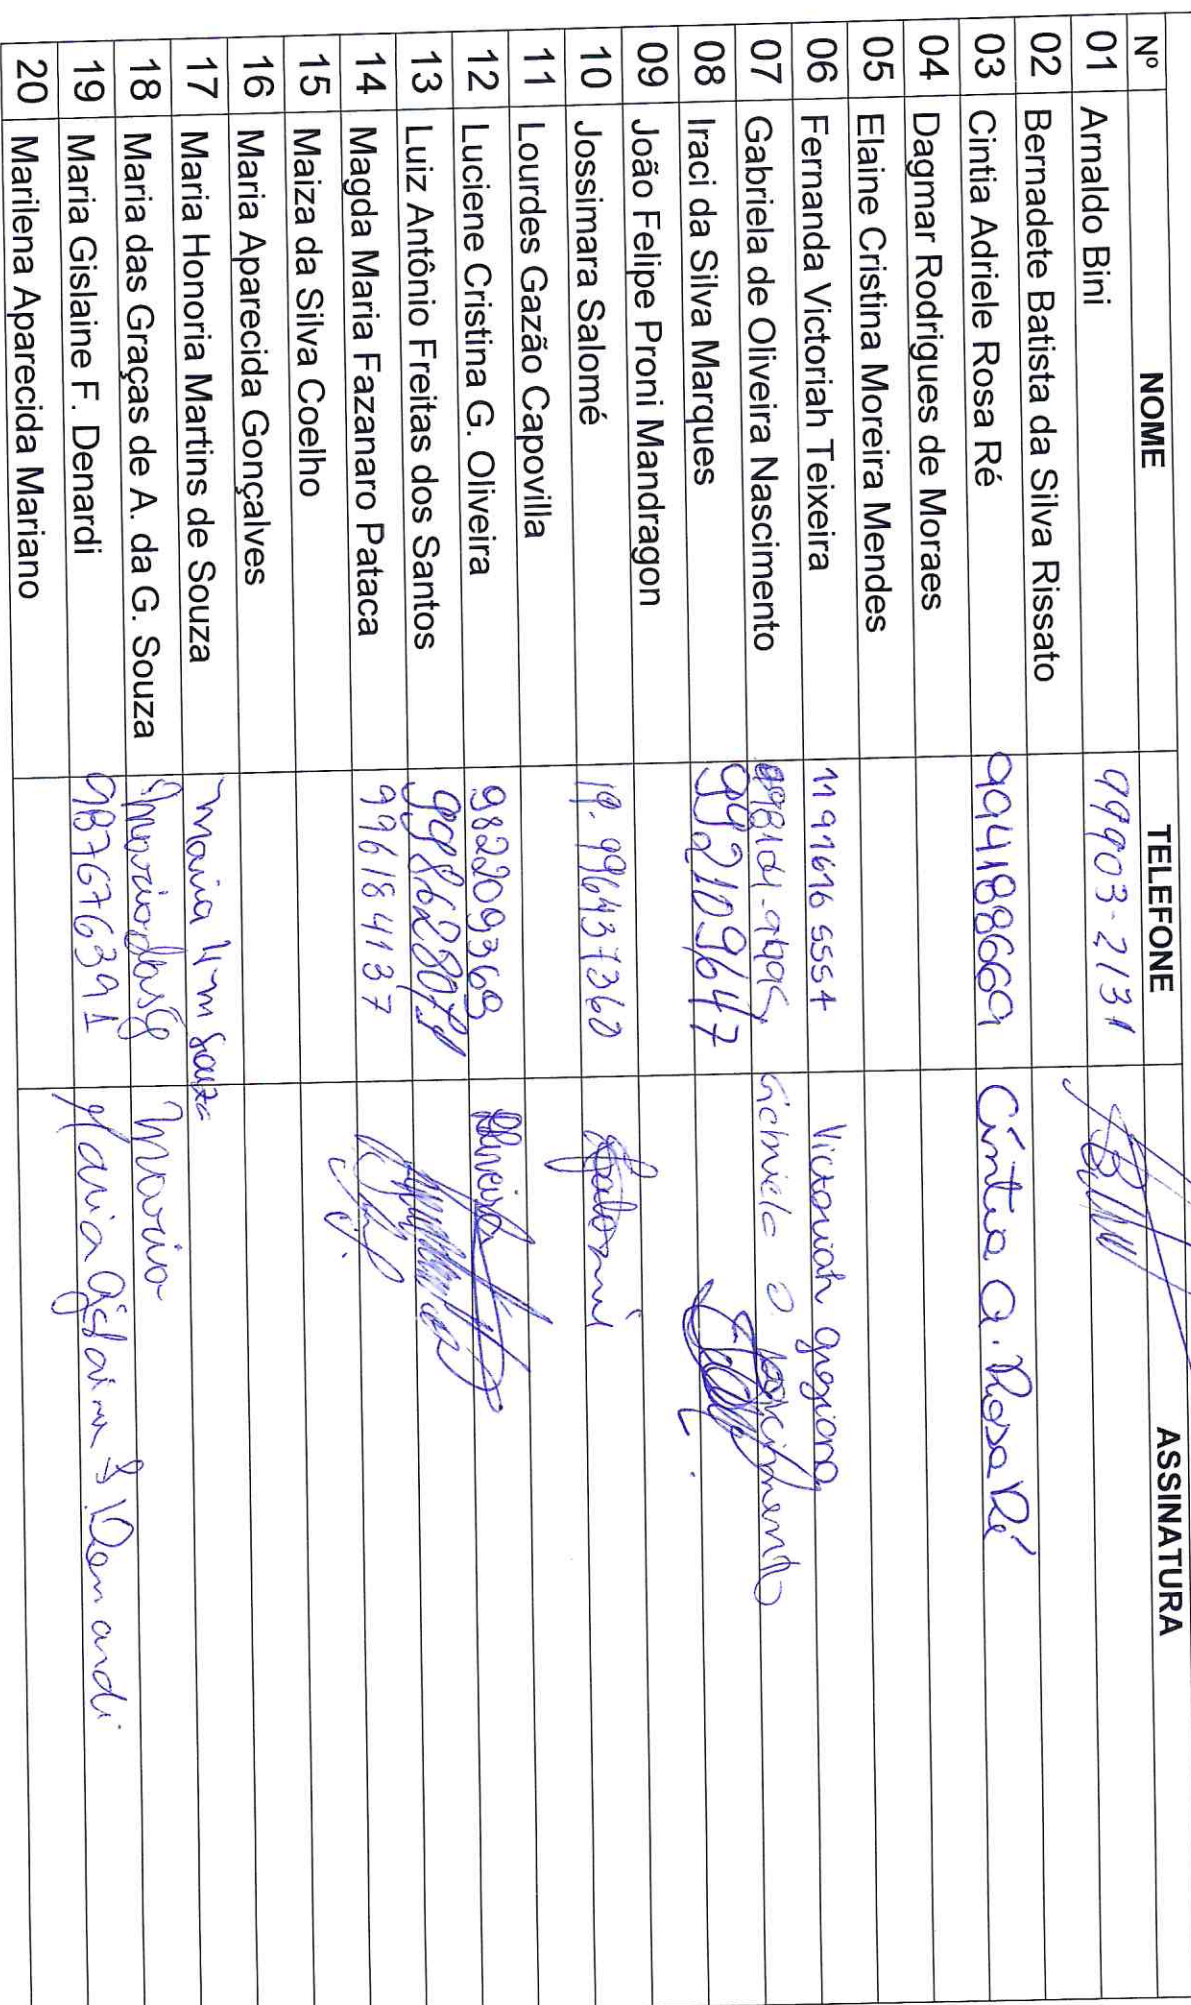 Nº NOME TELEFONE ASSINATURA
01 Arnaldo Bini 99903-2131
02 Bernadete Batista da Silva Rissato
03 Cintia Adriele Rosa Ré 994188669 Cíntia A. Rosa Ré
04 Dagmar Rodrigues de Moraes
05 Elaine Cristina Moreira Mendes
06 Fernanda Victoriah Teixeira 11 91616 5554 Victoriah
07 Gabriela de Oliveira Nascimento Gabriela O. Nascimento
08 Iraci da Silva Marques 992109647
09 João Felipe Proni Mandragon
10 Jossimara Salomé 19. 996437360 Salomé
11 Lourdes Gazão Capovilla
12 Luciene Cristina G. Oliveira 982209369 Oliveira
13 Luiz Antônio Freitas dos Santos
14 Magda Maria Fazanaro Pataca 996184137
15 Maiza da Silva Coelho
16 Maria Aparecida Gonçalves
17 Maria Honoria Martins de Souza Maria H M Souza
18 Maria das Graças de A. da G. Souza Maria das G Maria
19 Maria Gislaine F. Denardi 987676391 Maria Gislaine F Denardi
20 Marilena Aparecida Mariano